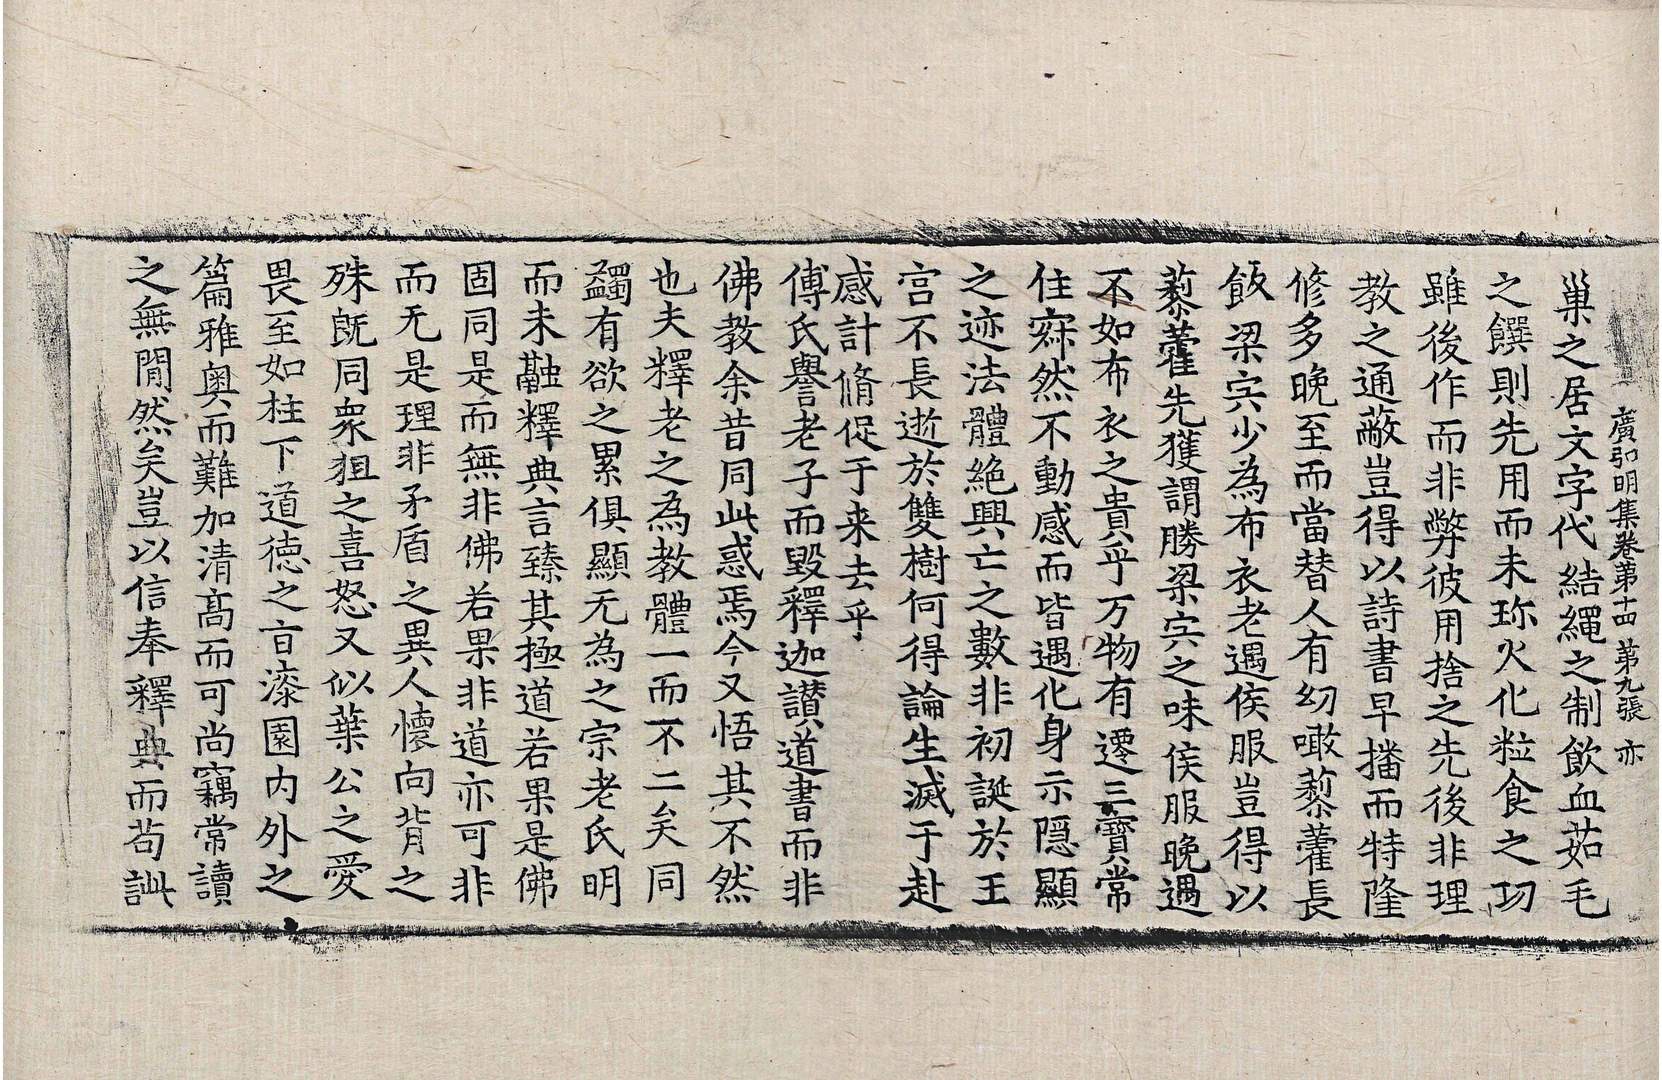 廣弘明集卷第十四 第九張 亦
巢之居文字代結繩之制飲血茹毛
之饌則先用而未珎火化粒食之㓛
雖後作而非弊彼用捨之先後非理
教之通蔽豈得以詩書早播而特隆
修多晚至而當替人有幼噉藜藿長
飯粱宍少為布衣老遇侯服豈得以
藜藿先獲謂勝粱宍之味侯服晚遇
不如布衣之貴乎万物有遷三寶常
住寂然不動感而皆遇化身示隱顯
之迹法體絕興亡之數非初誕於王
宫不長逝於雙樹何得論生滅于赴
感計脩促于来去乎
傅氏譽老子而毀釋迦讃道書而非
佛教余昔同此惑焉今又悟其不然
也夫釋老之為教體一而不二矣同
蠲有欲之累俱顯无為之宗老氏明
而未融釋典言臻其極道若果是佛
固同是而無非佛若果非道亦可非
而无是理非矛盾之異人懷向背之
殊既同衆狙之喜怒又似葉公之愛
畏至如柱下道徳之㫖漆園内外之
篇雅奥而難加清髙而可尚竊常讀
之無閒然矣豈以信奉釋典而苟訿